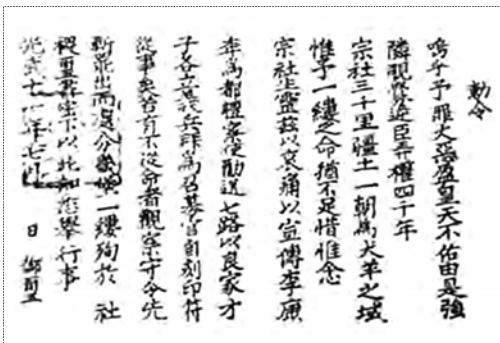 勅令
嗚乎予罪大惡盈皇天不佑由是強
隣視釁逆臣弄權四千年
宗社三千里疆土一朝爲犬羊之域
惟予一縷之命猶不足惜惟念
宗社生靈玆以哀痛以宣傳李康
秊爲都體察使勸送七路以良家才
子各立義兵拜爲召募官自刻印符
從事矣若有不從命者觀察守令先
斬罷出而 分畿堧一縷殉於 社
稷璽書密下以此知悉擧行事
光武十一年七月 日 御璽